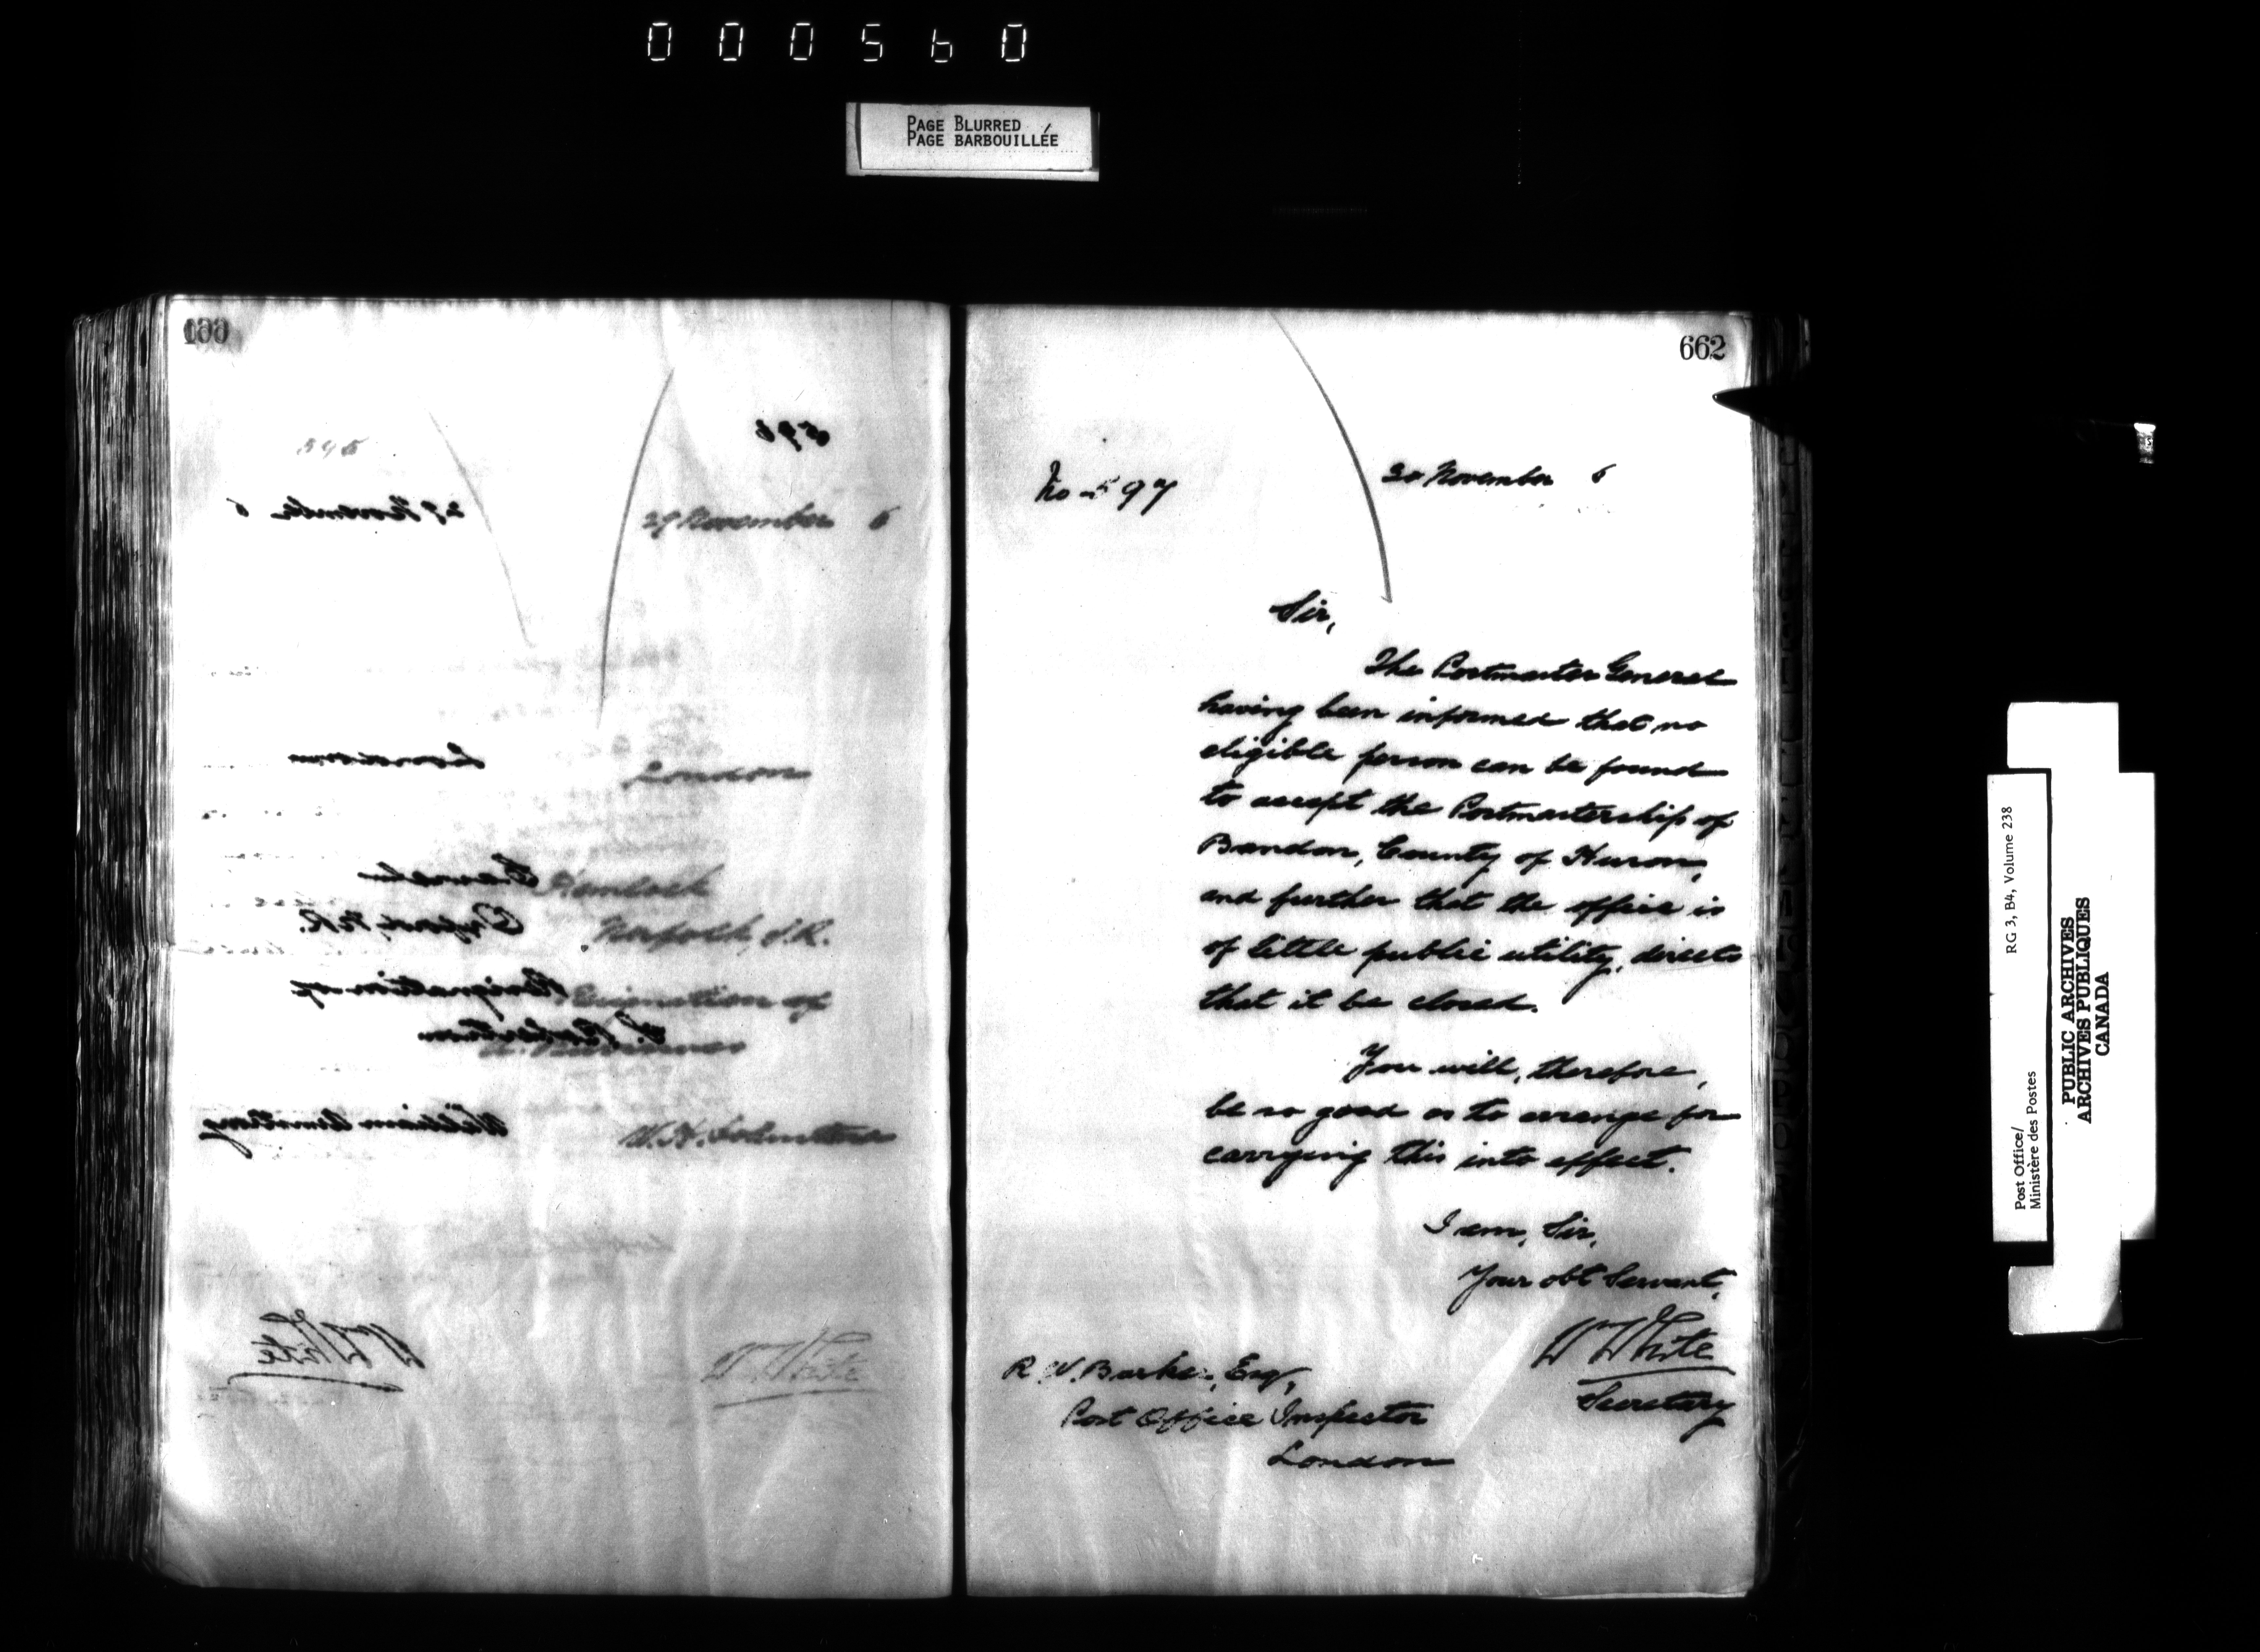 000560
PAGE BLURRED
PAGE BARBOUILLÉE
596
395
29 November 6
29 November 6
London
London
Hemlock
Oxford, N.R.
Norfolk, S.R.
Resignation of
Resignation of
Robertson
William Armstrong
W. H. Johnstone
W White
W White
662
No 597
30 November 6
Sir,
The Postmaster General
having been informed that no
eligible person can be found
to accept the Postmastership of
Bandon, County of Huron,
and further that the office is
of little public utility, directs
that it be closed.
You will, therefore,
be so good as to arrange for
carrying this into effect.
I am, Sir,
Your obt Servant,
W White
Secretary
R. W. Barker, Esq,
Post Office Inspector
London
RG 3, B4, Volume 238
Post Office/
Ministère des Postes
PUBLIC ARCHIVES
ARCHIVES PUBLIQUES
CANADA